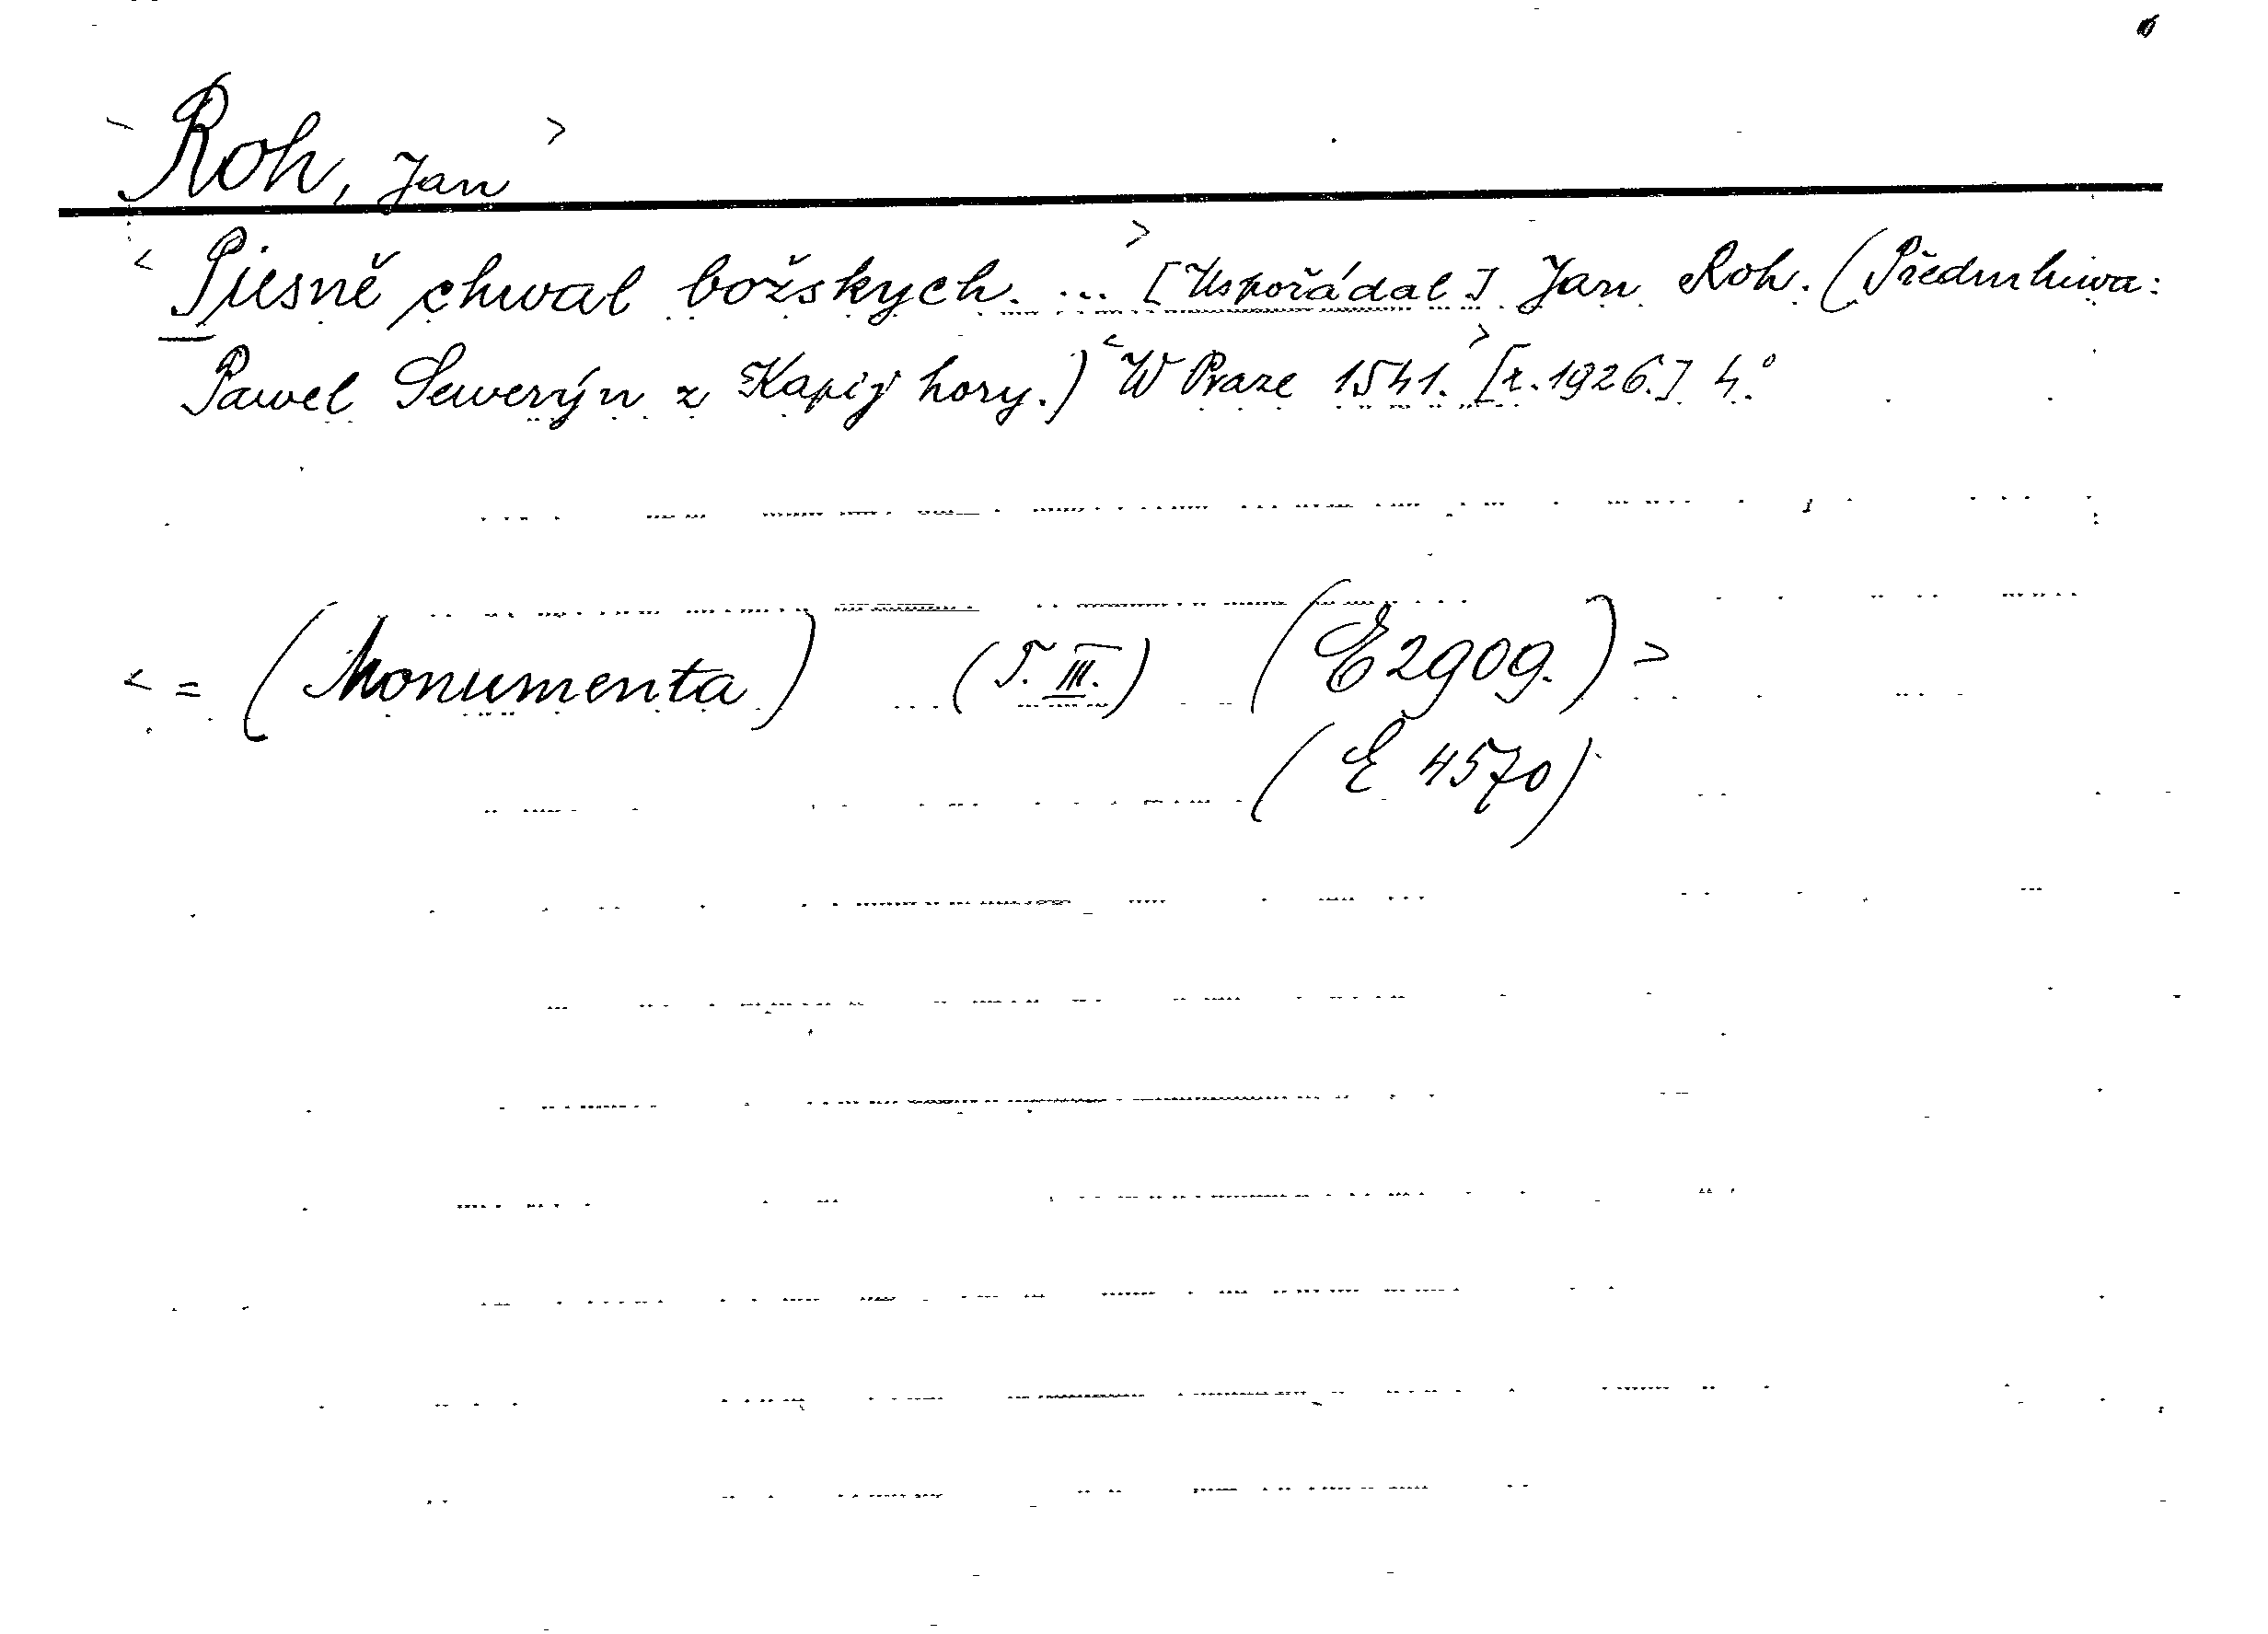 <Roh, Jan>
<Piesně chwal božskych. ...> [Uspořádal] Jan Roh. (Předmluwa:
Pawel Sewerýn z Kapij hory.) <W Praze 1541.> [r. 1926.] 4.°
<= (Monumenta) (T. III.) (E 2909.)>
(E 4570)